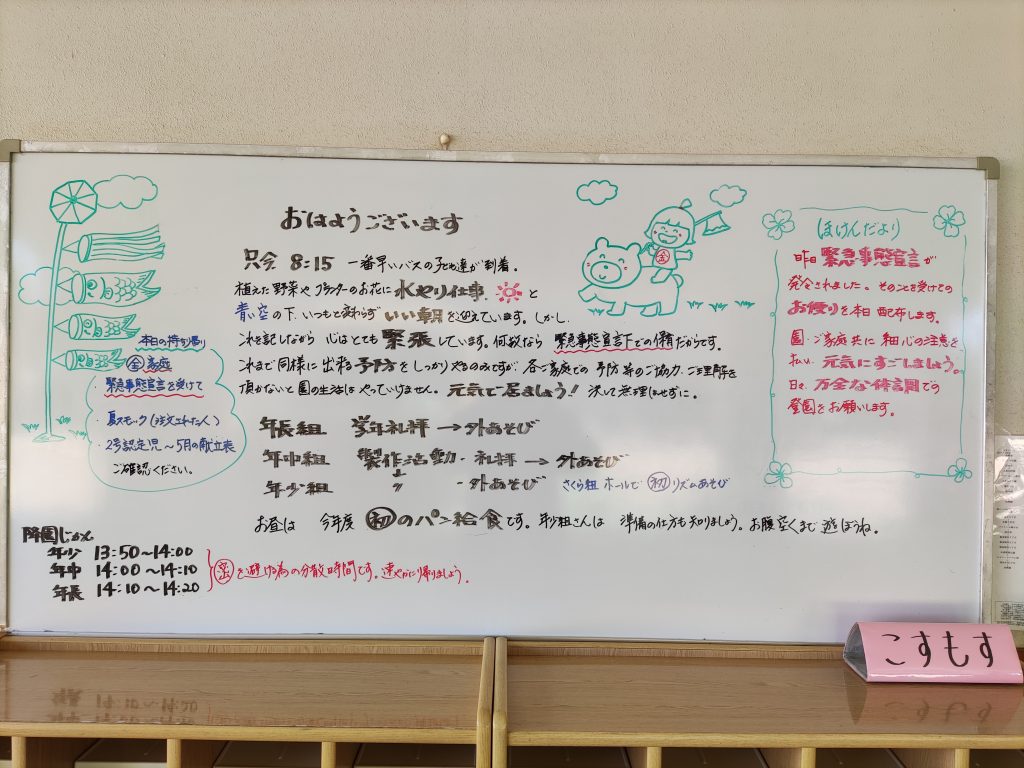 おはようございます
只今 8:15 一番早いバスの子ども達が到着。
植えた野菜やプランターのお花に水やり仕事 と
青い空の下、いつもと変わらず いい朝を迎えています。しかし、
これを記しながら 心はとても 緊張しています。何故なら 緊急事態宣言下での保育だからです。
これまで同様に 出来る予防をしっかりやるのみですが、各ご家庭での 予防 等のご協力、ご理解を
頂かないと園の生活は やっていけません。元気で居ましょう!! 決して無理はせずに。
年長組 学年礼拝→外あそび
年中組 製作活動・礼拝→外あそび
年少組 〃 ・外あそび さくら組 ホールで 初 リズムあそび
お昼は 今年度 初のパン給食です。年少組さんは 準備の仕方も知りましょう。お腹空くまで 遊ぼうね。
本日の持ち帰り
全家庭
・緊急事態宣言を受けて
・夏スモック(注文された人)
・2号認定児〜5月の献立表
ご確認ください。
降園じかん
年少 13:50〜14:00
年中 14:00〜14:10
年長 14:10〜14:20
密を避ける為の分散時間です。速やかに帰りましょう。
ほけんだより
昨日 緊急事態宣言が
発令されました。そのことを受けての
お便りを本日 配布します。
園・ご家庭共に 細心の注意を
払い 元気にすごしましょう。
日々 万全な体調での
登園をお願いします。
こすもす